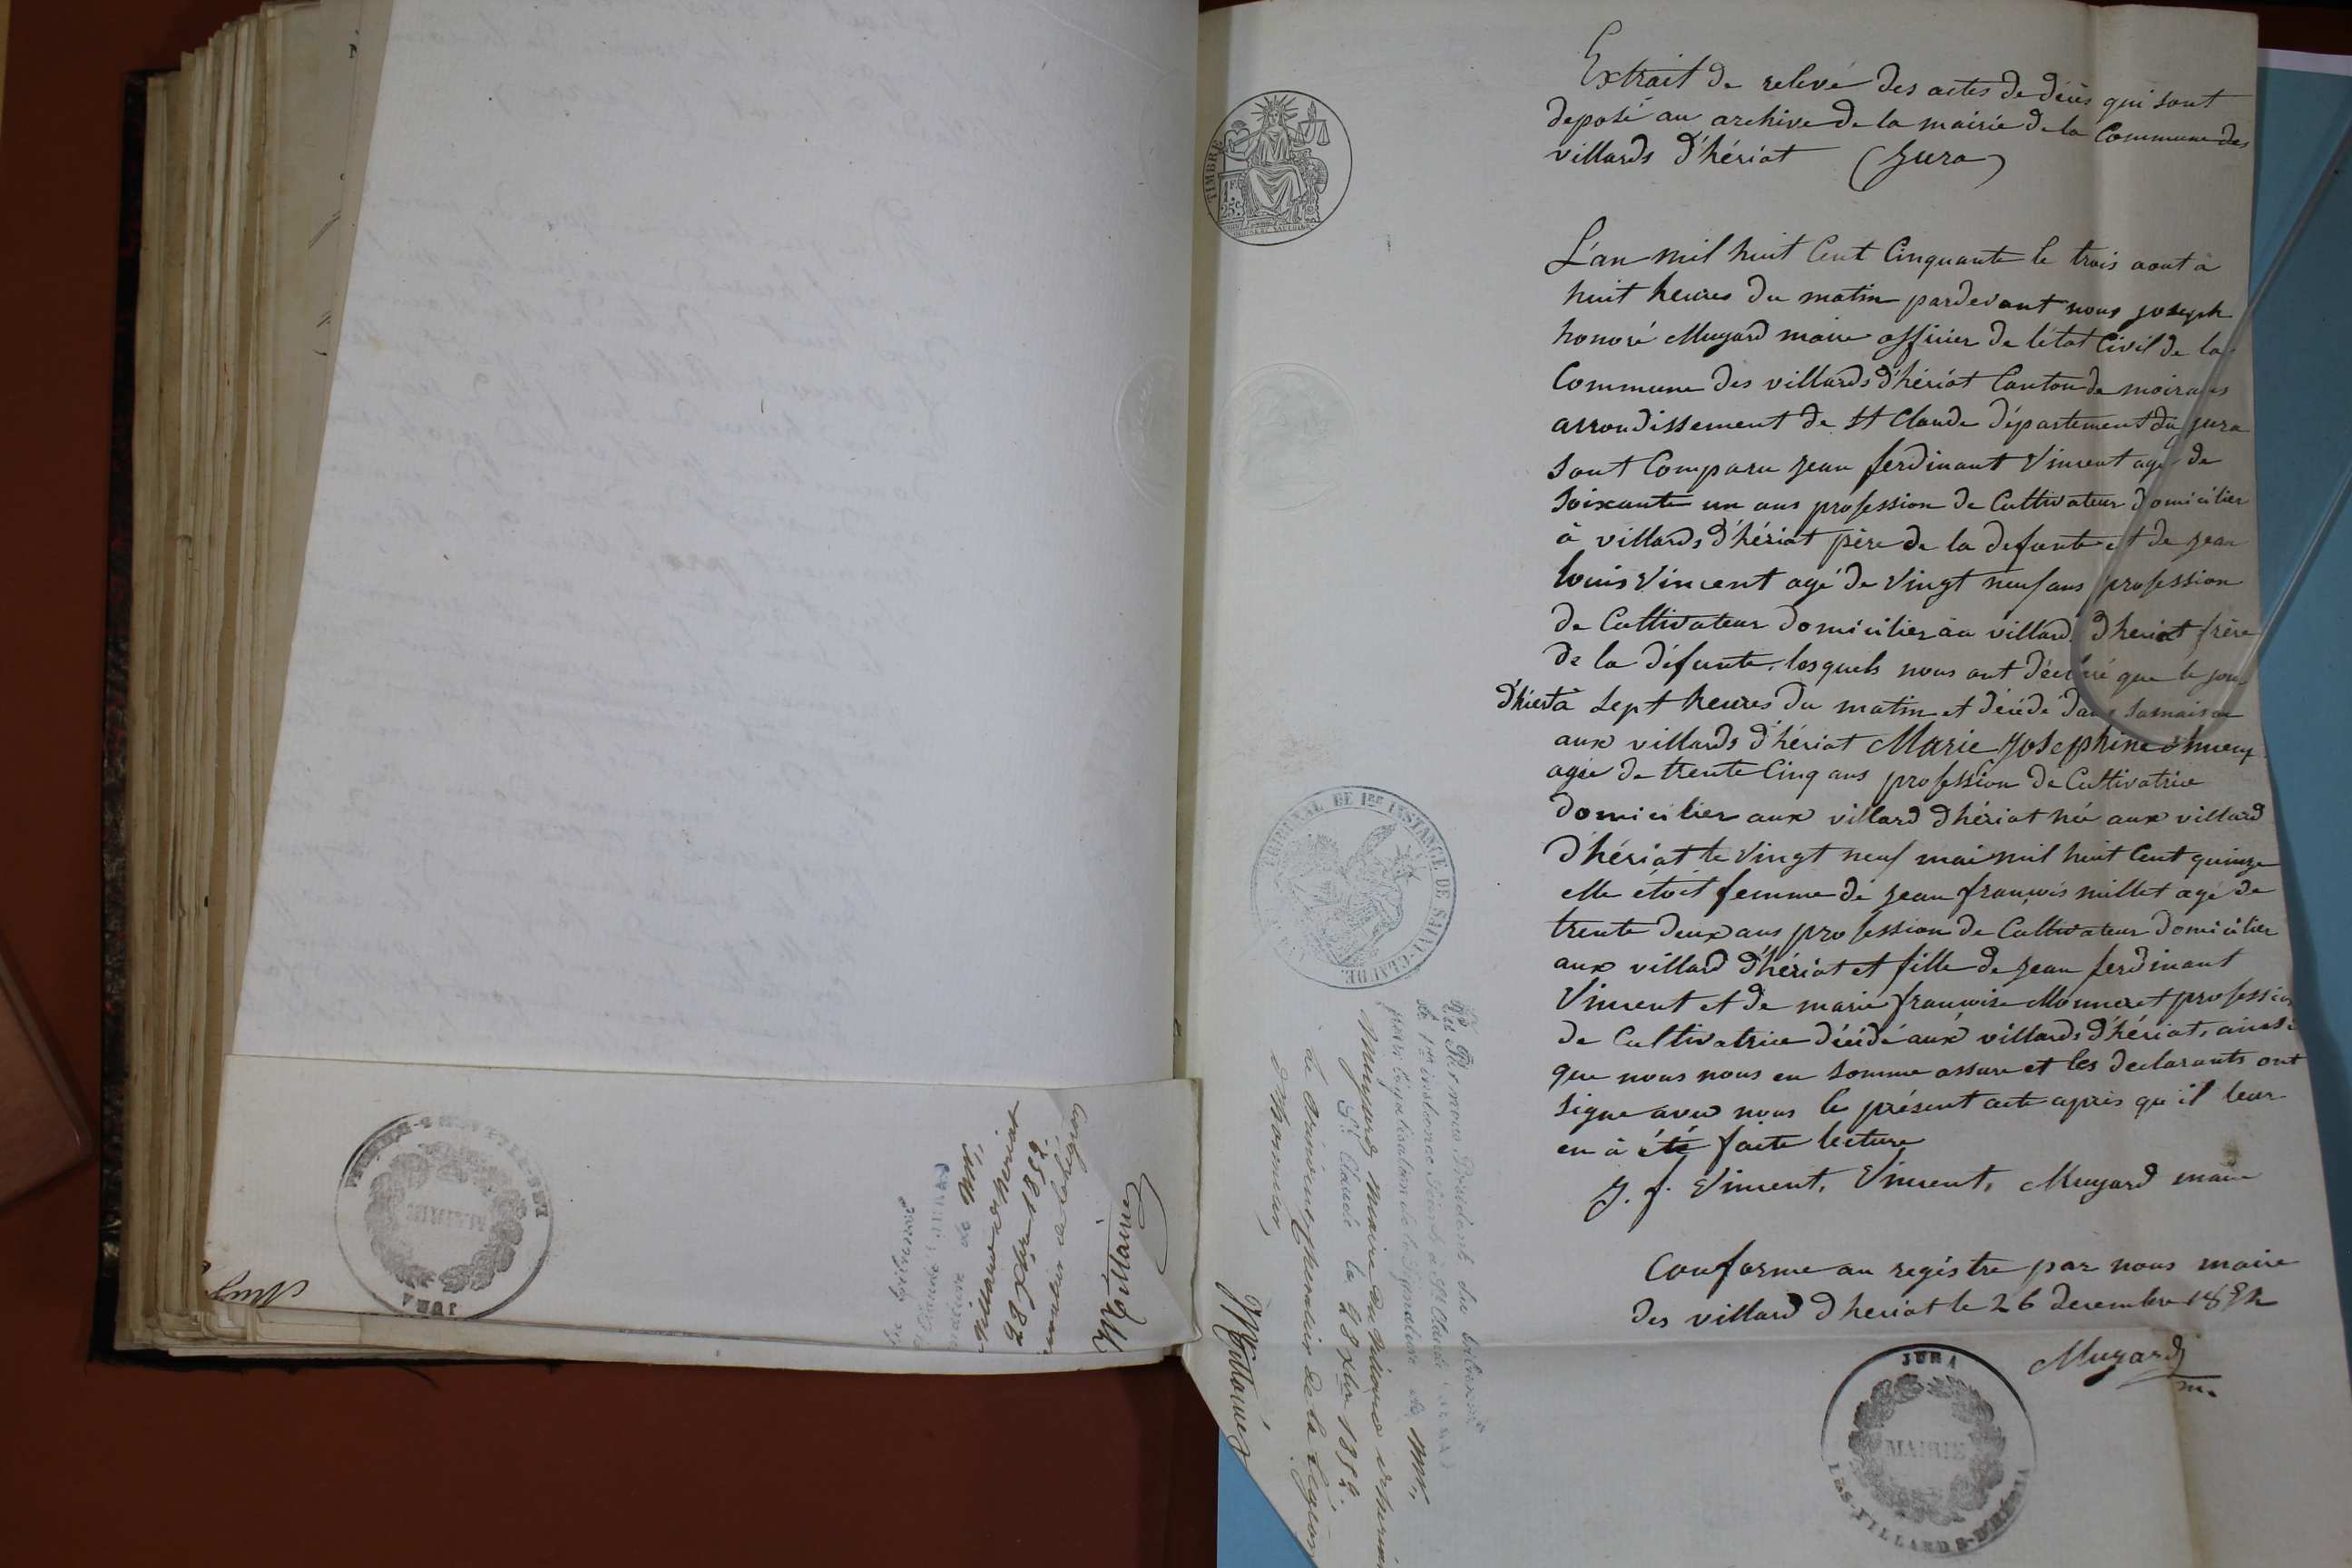 Extrait de relevé des actes de décès qui sont
deposé au archive de la mairie de la Commune des
villards d'hériat (Jura)
TIMBRE
1 F.
25 c.
L'an mil huit Cent Cinquante le trois aout à
huit heures du matin pardevant nous joseph
honoré Muyard maire officier de l'état Civil de la
Commune des villards d'hériat Canton de moirans
arrondissement de St Claude département du jura
sont Comparu jean ferdinant Vincent agé de
Soixante un ans profession de Cultivateur domicilier
à villards d'hériat père de la defunte et de jean
louis Vincent agé de Vingt neuf ans profession
de Cultivateur domicilier au villard d'heriat frère
de la défunte, lesquels nous ont déclaré que le jour
d'hier à Sept heures du matin et décédé dans sa maison
aux villards d'hériat Marie Josephine
agée de trente Cinq ans profession de Cultivatrice
domicilier aux villard d'hériat née aux villard
d'hériat le Vingt neuf mai mil huit Cent quinze
elle étoit femme de jean françois millet agé de
trente deux ans profession de Cultivateur domicilier
aux villard d'hériat et fille de jean ferdinant
Vincent et de marie françoise Monneret profession
de Cultivatrice décédé aux villards d'hériat, ainsi
que nous nous en somme assure et les declarants ont
signe avec nous le présent acte après qu'il leur
en à été faite lecture
J. f. Vincent, Vincent, Muyard maire
Conforme au registre par nous maire
des villard d'heriat le 26 decembre 1852
Muyard
m.
JURA
MAIRIE
LES-VILLARDS-D'HÉRIA
TRIBUNAL DE 1ERE INSTANCE DE SAINT-CLAUDE
Vu Par nous Président du tribunal
de 1re instance séant à St Claude (JURA)
pour légalisation de la signature de Mr,
Muyard, maire du Villard d'heriat
St Claude le 28 Xbre 1852.
Le Président, chevalier de la légion
d'honneur,
MAIRIE
JURA
28 Xbre 1852.